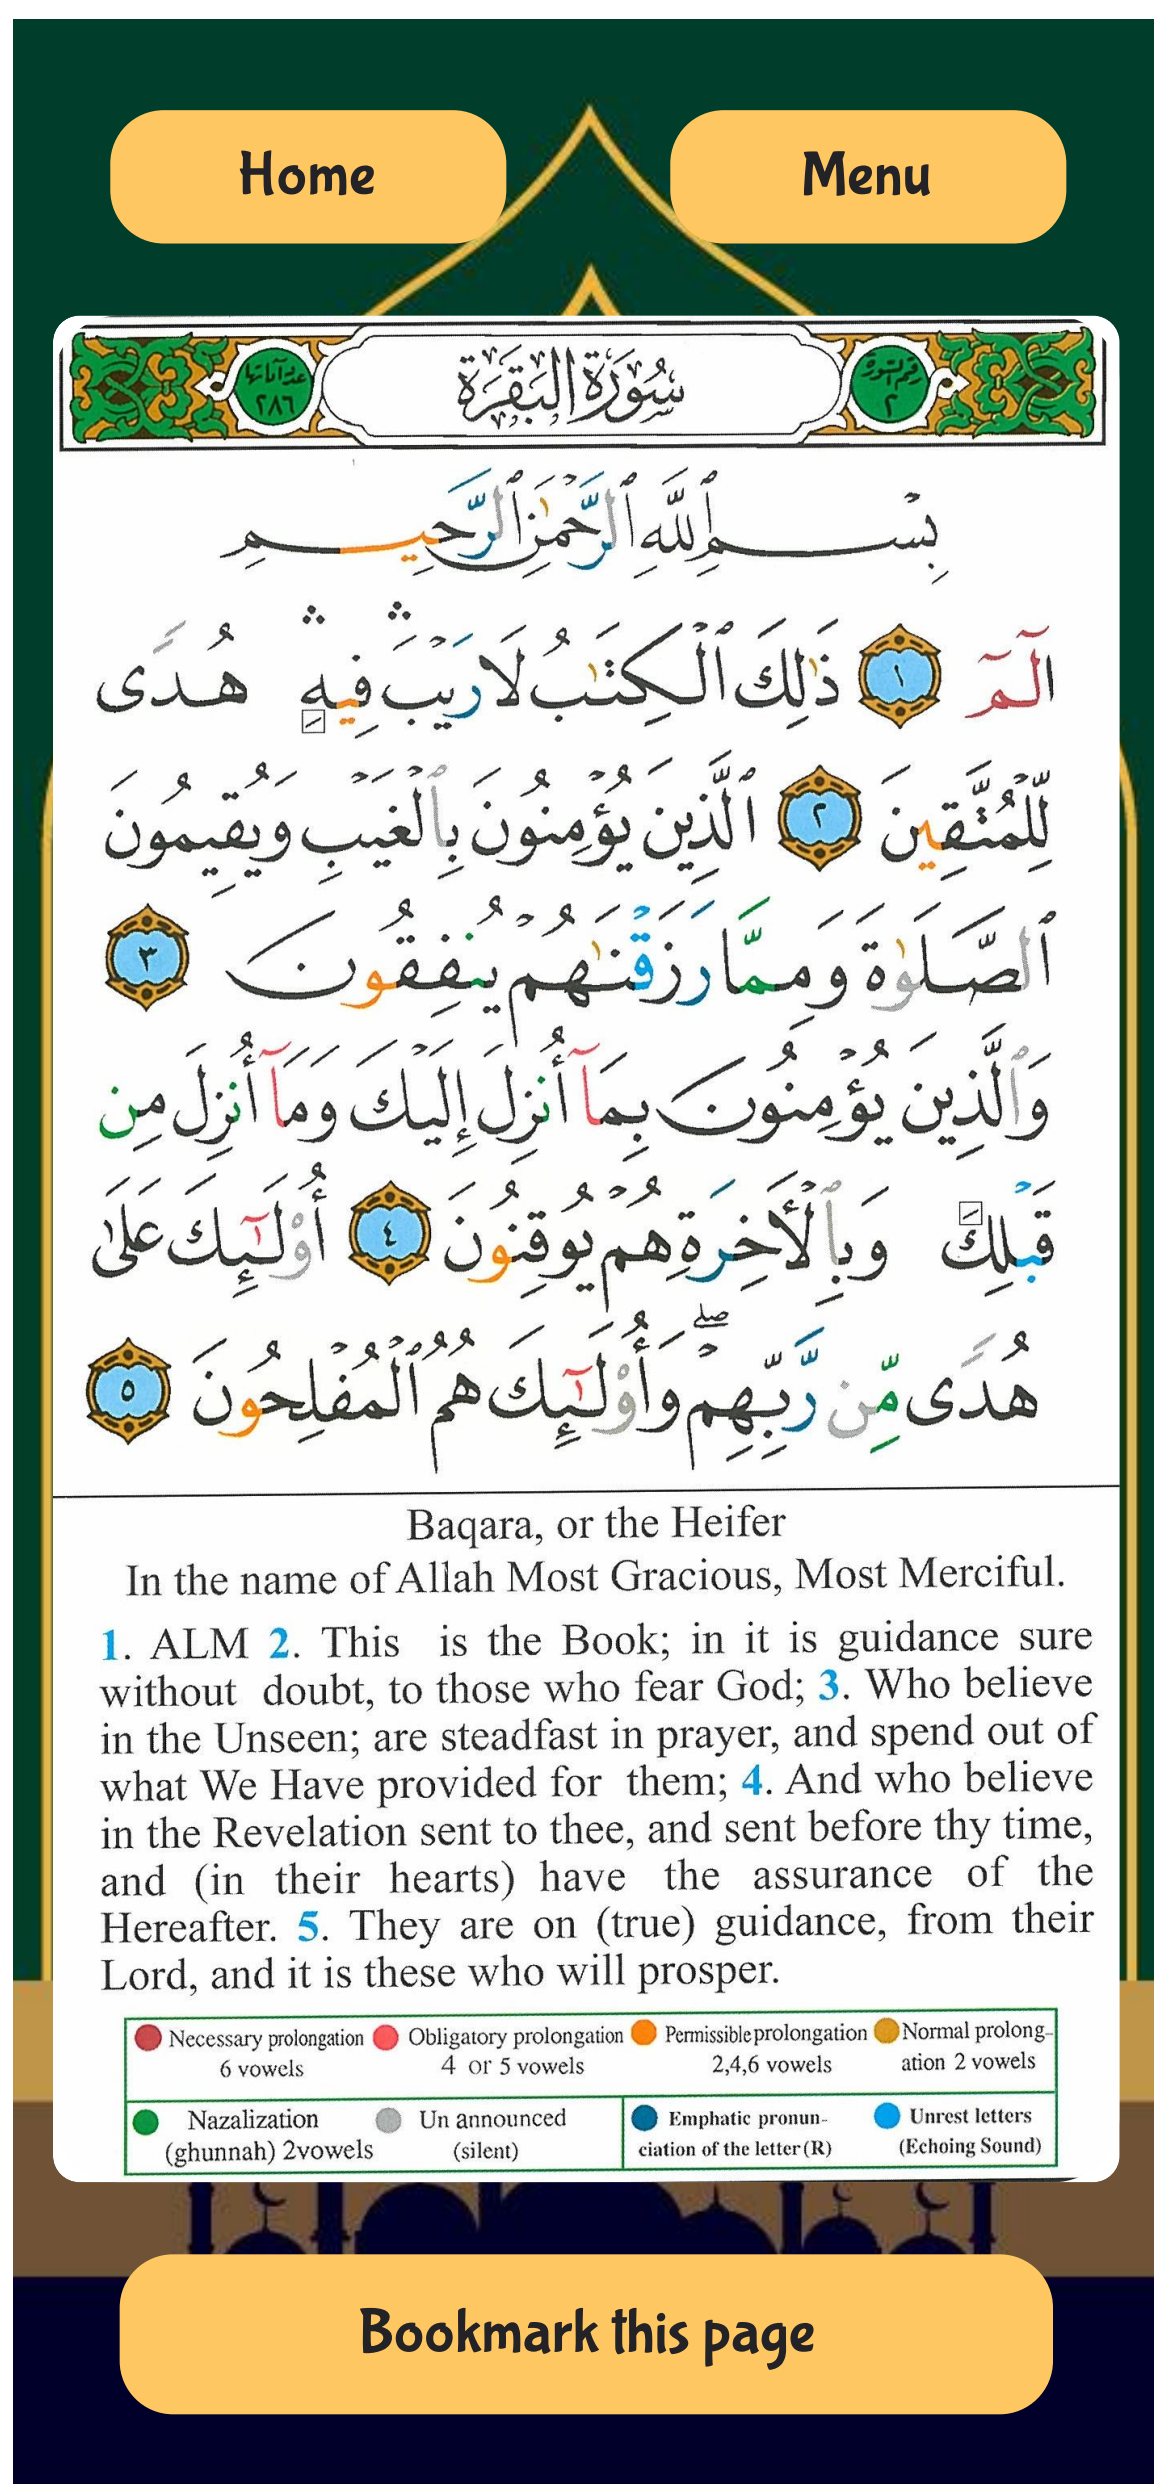 Home
Menu
عدد آياتها
٢٨٦
سُورَةُ البَقَرَةِ
رقم السورة
٢
بِسْمِ ٱللَّهِ ٱلرَّحْمَٰنِ ٱلرَّحِيمِ
الٓمٓ ١ ذَٰلِكَ ٱلْكِتَٰبُ لَا رَيْبَ ۛ فِيهِ ۛ هُدًى
لِّلْمُتَّقِينَ ٢ ٱلَّذِينَ يُؤْمِنُونَ بِٱلْغَيْبِ وَيُقِيمُونَ
ٱلصَّلَوٰةَ وَمِمَّا رَزَقْنَٰهُمْ يُنفِقُونَ ٣
وَٱلَّذِينَ يُؤْمِنُونَ بِمَآ أُنزِلَ إِلَيْكَ وَمَآ أُنزِلَ مِن
قَبْلِكَ وَبِٱلْأَخِرَةِ هُمْ يُوقِنُونَ ٤ أُو۟لَٰٓئِكَ عَلَىٰ
هُدًى مِّن رَّبِّهِمْ ۖ وَأُو۟لَٰٓئِكَ هُمُ ٱلْمُفْلِحُونَ ٥
Baqara, or the Heifer
In the name of Allah Most Gracious, Most Merciful.
1. ALM 2. This is the Book; in it is guidance sure
without doubt, to those who fear God; 3. Who believe
in the Unseen; are steadfast in prayer, and spend out of
what We Have provided for them; 4. And who believe
in the Revelation sent to thee, and sent before thy time,
and (in their hearts) have the assurance of the
Hereafter. 5. They are on (true) guidance, from their
Lord, and it is these who will prosper.
Necessary prolongation
6 vowels
Obligatory prolongation
4 or 5 vowels
Permissible prolongation
2,4,6 vowels
Normal prolong-
ation 2 vowels
Nazalization
(ghunnah) 2vowels
Un announced
(silent)
Emphatic pronun-
ciation of the letter (R)
Unrest letters
(Echoing Sound)
Bookmark this page